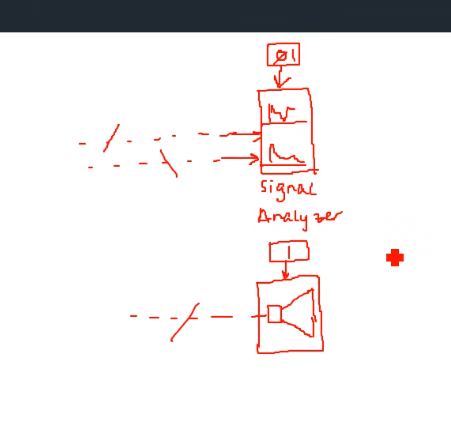 Ø1
Signal
Analyzer
1